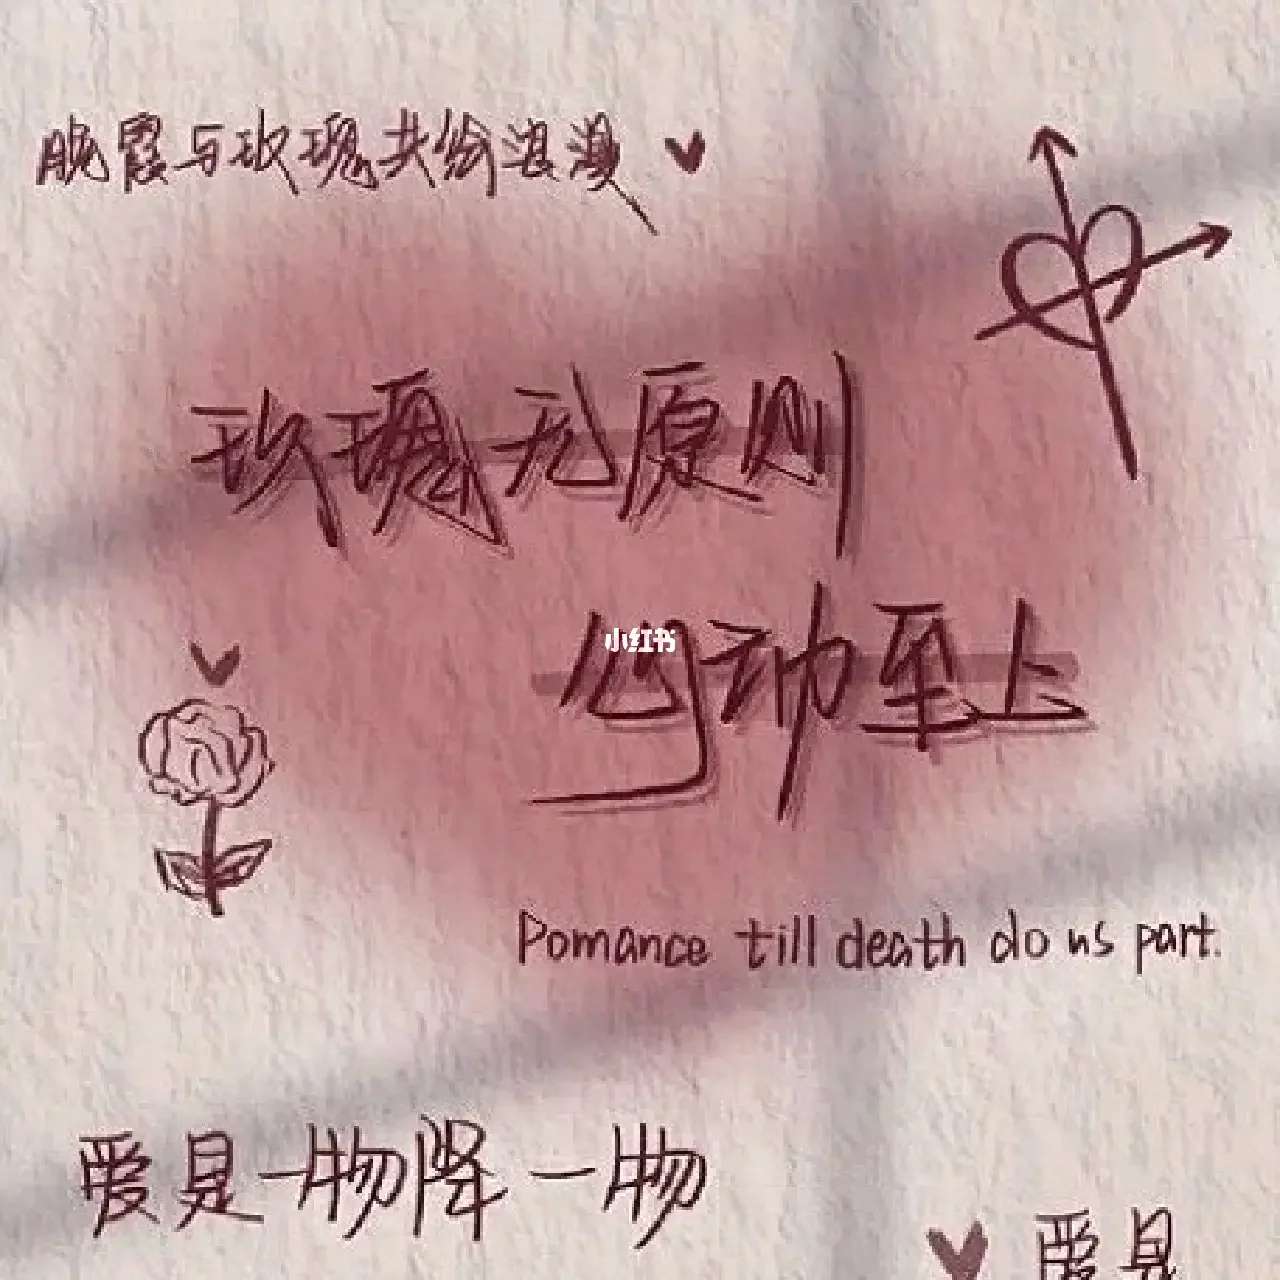 晚霞与玫瑰共绘浪漫
玫瑰无原则
小红书
心动至上
Pomance till death do us part.
爱是一物降一物
爱是